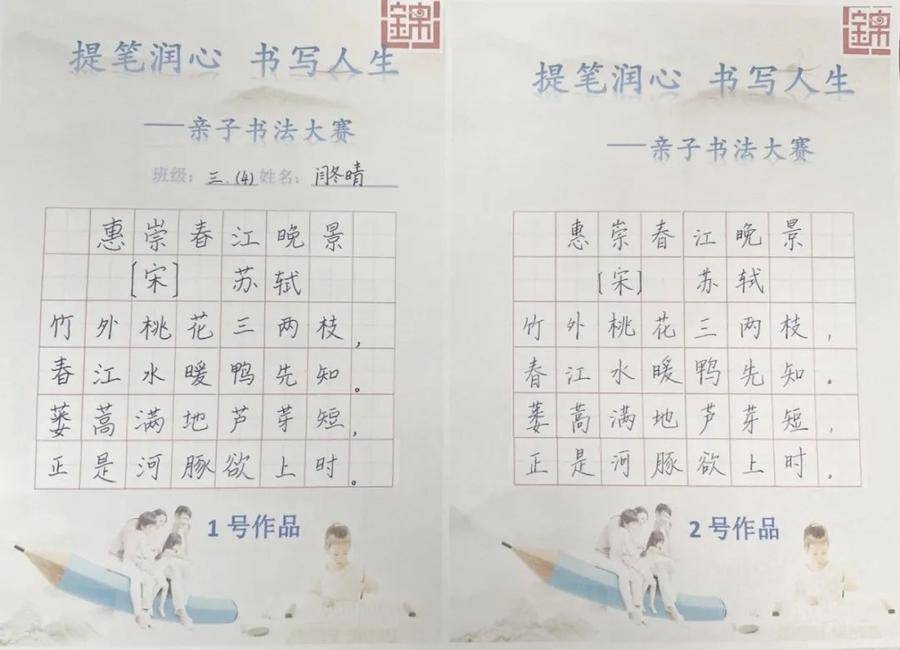 錦
提笔润心 书写人生
——亲子书法大赛
班级：三.(4)姓名：闫冬晴
惠崇春江晚景
[宋] 苏轼
竹外桃花三两枝，
春江水暖鸭先知。
蒌蒿满地芦芽短，
正是河豚欲上时。
1号作品
錦
提笔润心 书写人生
——亲子书法大赛
惠崇春江晚景
[宋] 苏轼
竹外桃花三两枝，
春江水暖鸭先知。
蒌蒿满地芦芽短，
正是河豚欲上时.
2号作品